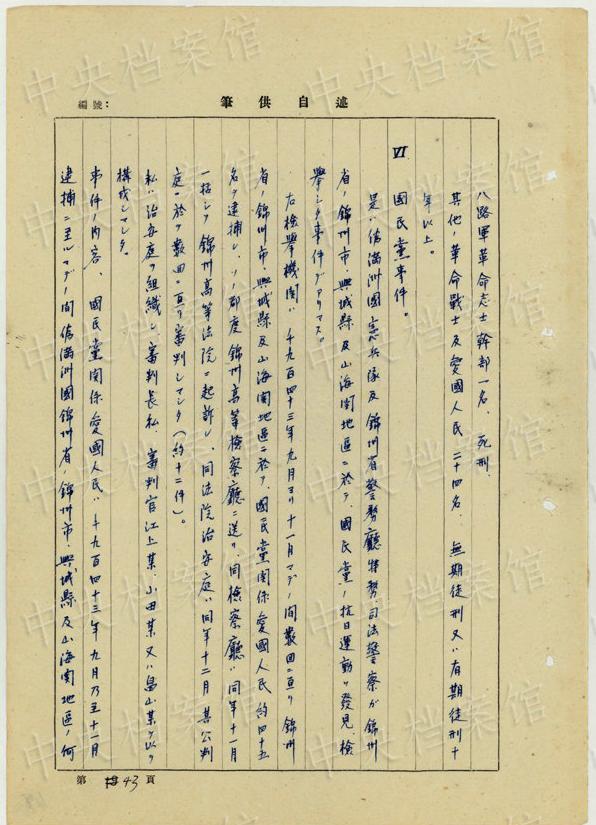 編號：
述自供筆
八路軍革命志士幹部一名、死刑
其他ノ革命戰士及愛國人民 二十四名、無期徒刑又ハ有期徒刑十
年以上。
Ⅵ 國民黨事件。
是ハ偽滿洲國憲兵隊及錦州省警務廳特務、司法警察ガ錦州
省ノ錦州市、興城縣及山海関地區ニ於テ、國民黨ノ抗日運動ヲ發見、檢
舉シタ事件デアリマス。
右檢舉機関ハ 千九百四十三年九月ヨリ十一月マデノ間數回ニ亘リ錦州
省ノ錦州市、興城縣及山海関地區ニ於テ、國民黨関係愛國人民約四十五
名ヲ逮捕シ、ソノ都度錦州高等檢察廳ニ送リ、同檢察廳ハ同年十一月
一括シテ錦州高等法院ニ起訴シ、同法院治安庭ハ同年十二月 其公判
庭ニ於テ數回ニ亘リ審判シマシタ（約十二件）。
私ハ治安庭ヲ組織シ、審判長私、審判官江上某、小田某又ハ畠山某ヲ以テ
構成シマシタ。
事件ノ内容、國民黨関係愛國人民ハ 千九百四十三年九月乃至十一月
逮捕ニ至ルマデノ間偽滿洲國錦州省ノ錦州市、興城縣及山海関地區ノ何
第 43 頁
中央档案馆